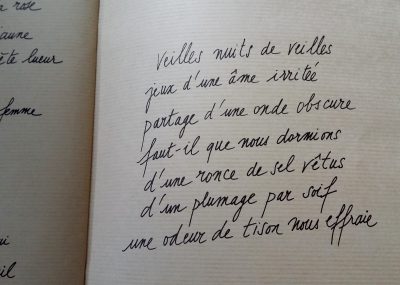 rose
jaune
lueur
femme
Veilles nuits de veilles
jeux d'une âme irritée
partage d'une onde obscure
faut-il que nous dormions
d'une ronce de sel vêtus
d'un plumage par soif
une odeur de tison nous effraie